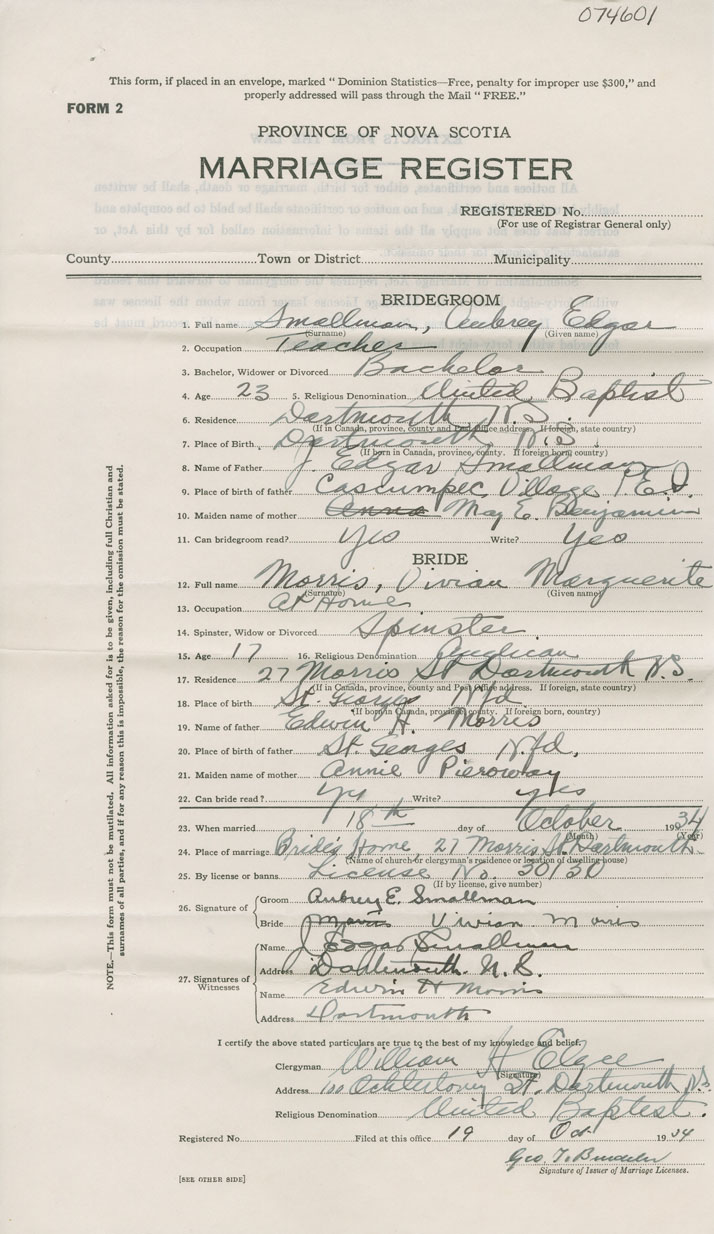 074601
This form, if placed in an envelope, marked "Dominion Statistics—Free, penalty for improper use $300," and
properly addressed will pass through the Mail "FREE."
FORM 2
PROVINCE OF NOVA SCOTIA
MARRIAGE REGISTER
REGISTERED No.
(For use of Registrar General only)
County Town or District Municipality
BRIDEGROOM
1. Full name Smallman, Aubrey Edgar
(Surname) (Given name)
2. Occupation Teacher
3. Bachelor, Widower or Divorced Bachelor
4. Age 23 5. Religious Denomination United Baptist
6. Residence Dartmouth N.S.
(If in Canada, province, county and Post Office address. If foreign, state country)
7. Place of Birth Dartmouth N.S.
(If born in Canada, province, county. If foreign born, country)
8. Name of Father J. Edgar Smallman
9. Place of birth of father Cascumpec Village P.E.I.
10. Maiden name of mother Anna May E. Benjamin
11. Can bridegroom read? Yes Write? Yes
BRIDE
12. Full name Morris, Vivian Marguerite
(Surname) (Given name)
13. Occupation At Home
14. Spinster, Widow or Divorced Spinster
15. Age 17 16. Religious Denomination Anglican
17. Residence 27 Morris St Dartmouth N.S.
(If in Canada, province, county and Post Office address. If foreign, state country)
18. Place of birth St. Georges Nfd.
(If born in Canada, province, county. If foreign born, country)
19. Name of father Edwin H. Morris
20. Place of birth of father St Georges Nfd,
21. Maiden name of mother Annie Pieroway
22. Can bride read? yes Write? yes
23. When married 18th day of October 1934
(Month) (Year)
24. Place of marriage Bride's Home 27 Morris St. Dartmouth
(Name of church or clergyman's residence or location of dwelling house)
25. By license or banns License No. 30130
(If by license, give number)
26. Signature of
Groom Aubrey E. Smallman
Bride Morris Vivian Morris
27. Signatures of Witnesses
Name J Edgar Smallman
Address Dartmouth N.S.
Name Edwin H Morris
Address Dartmouth
I certify the above stated particulars are true to the best of my knowledge and belief.
Clergyman William H Elgee
(Signature)
Address St. Dartmouth N.S.
Religious Denomination United Baptist.
Registered No. Filed at this office 19 day of Oct 1934
Geo.
Signature of Issuer of Marriage Licenses.
[SEE OTHER SIDE]
NOTE.—This form must not be mutilated. All information asked for is to be given, including full Christian and
surnames of all parties, and if for any reason this is impossible, the reason for the omission must be stated.